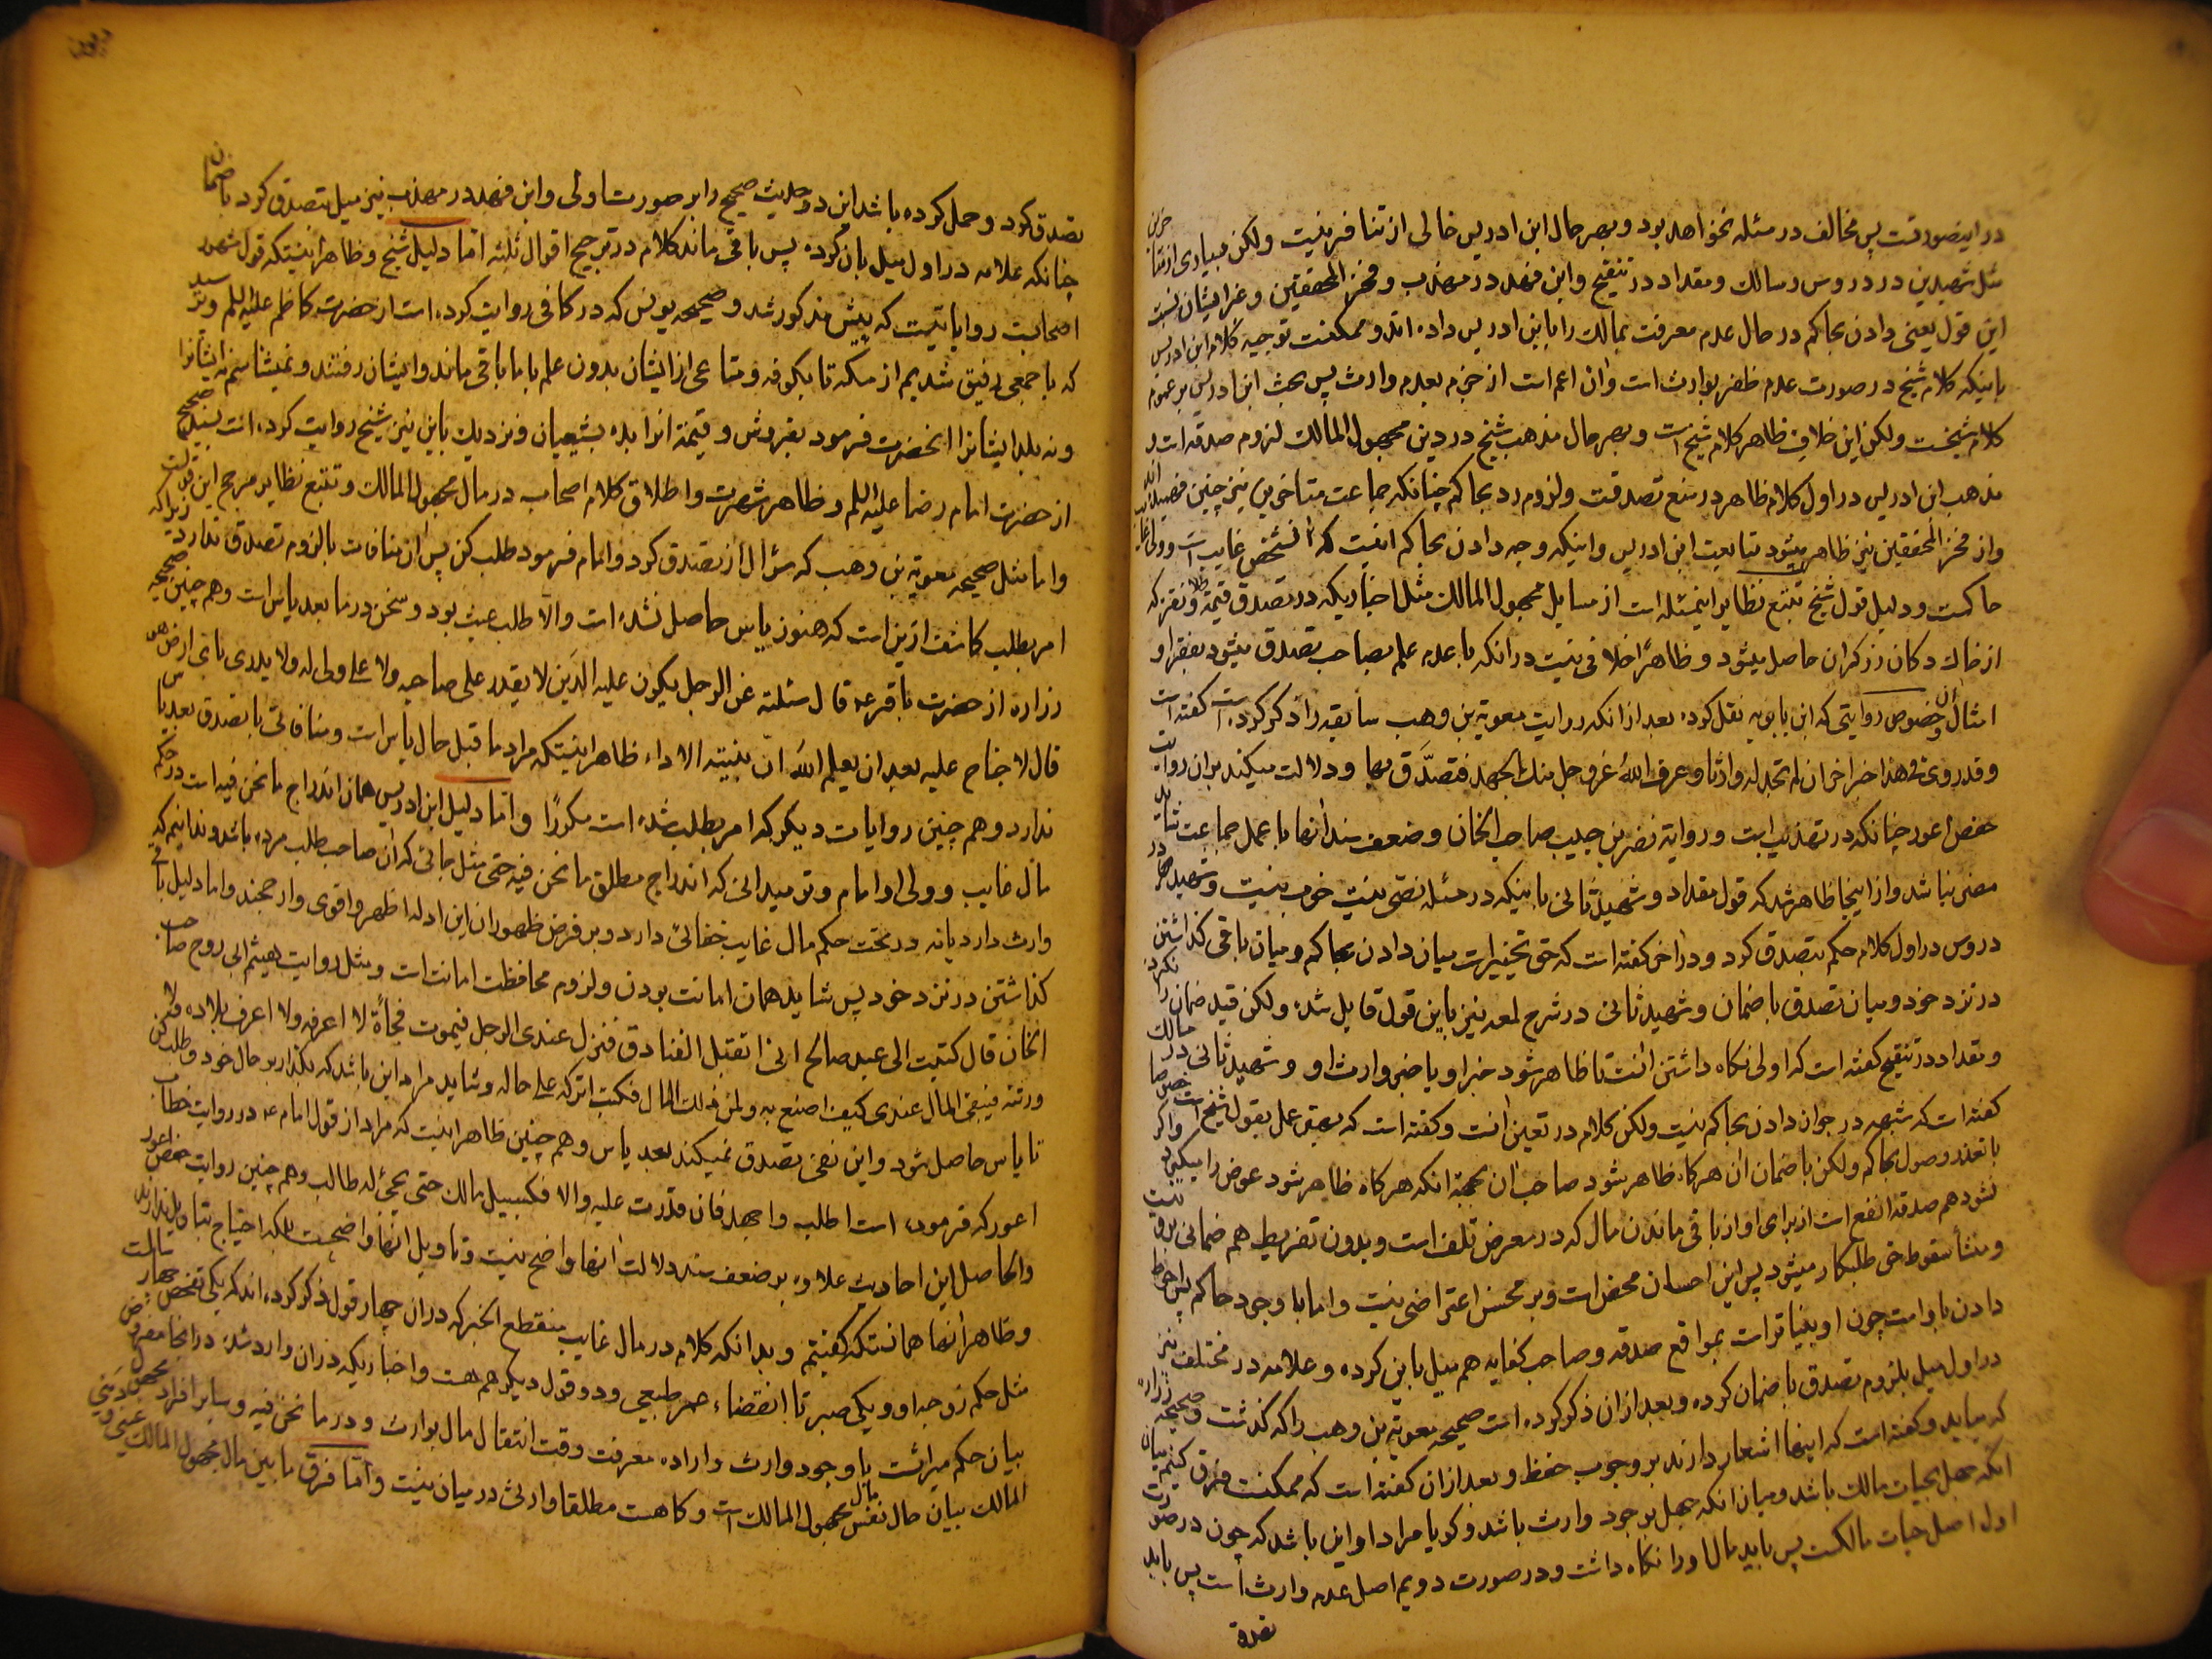 در اینصورتست پس مخالف در مسئله نخواهد بود و بهر حال ابن ادریس خالی از تنافر نیست ولکن بسیاری از متاخرین
مثل شهیدین در دروس و مسالک و مقداد در تنقیح و ابن فهد در مهذب و فخر المحققین و غیر ایشان نسبت
این قول یعنی دادن بحاکم در حال عدم معرفت بمالک را بابن ادریس داده اند و ممکنست توجیه کلام ابن ادریس
باینکه کلام شیخ در صورت عدم ظفر بوارث است و ان اعم است از جزم بعدم وارث پس بحث ابن ادریس بر عموم
کلام شیخست ولکن این خلاف ظاهر کلام شیخ است و بهر حال مذهب شیخ در دین مجهول المالک لزوم صدقه است و
مذهب ابن ادریس در اول کلام ظاهر در منع تصدقست و لزوم رد بحاکم چنانکه جماعت متاخرین نیز چنین فهمیده اند
و از فخر المحققین نیز ظاهر میشود متابعت ابن ادریس و اینکه وجه دادن بحاکم اینست که انشخص غایب است و ولی غایب
حاکمست و دلیل قول شیخ تتبع نظایر اینمسئله است از مسایل مجهول المالک مثل اخباریکه در تصدق قیمة طلا و نقره که
از خاک دکان زرگران حاصل میشود و ظاهرا خلافی نیست در انکه با عدم علم بصاحب تصدق میشود بفقراء و
امثال ان و خصوص روایتی که ابن بابویه نقل کرده بعد از انکه روایت معویة بن وهب سابقه را ذکر کرده است گفته است
و قد روی فی هذا خبر اخر ان لم تجد له وارثا و عرف الله عز و جل منک الجهد فتصدق بها و دلالت میکند بران روایت
حفص اعور چنانکه در تهذیب است و روایة نضر بن حبیب صاحب الخان و ضعف سند انها با عمل جماعت شاید
مضر نباشد و از اینجا ظاهر شد که قول مقداد و شهید ثانی باینکه در مسئله نصی نیست خوب نیست و شهید در
دروس در اول کلام حکم بتصدق کرد و در اخر گفته است که حق تخییر است میان دادن بحاکم و میان باقی گذاشتن
در نزد خود و میان تصدق با ضمان و شهید ثانی در شرح لمعه نیز باین قول قایل شده ولکن قید ضمان را نکرده
و مقداد در تنقیح گفته است که اولی نگاه داشتن انست تا ظاهر شود خبر او یا خبر وارث او و شهید ثانی در مسالک
گفته است که شبهه در جواز دادن بحاکم نیست ولکن کلام در تعین انست و گفته است که عمل بقول شیخ است
با تعذر وصول بحاکم ولکن با ضمان ان هرگاه ظاهر شود صاحب ان بجهة انکه هرگاه ظاهر شود عوض را میگیرد و اگر
نشود هم صدقه انفع است از برای او از باقی ماندن مال که در معرض تلف است و بدون تفریط هم ضمانی بر او نیست
و منشأ سقوط حق طلبکار میشود پس این احسان محض است و بر محسن اعتراضی نیست و اما با وجود حاکم پس احوط
دادن باو است چون او بیناتر است بمواقع صدقه و صاحب کفایه هم میل باین کرده و علامه در مختلف نیز
در اول میل بلزوم تصدق با ضمان کرده و بعد از ان ذکر کرده است صحیحه معویة بن وهب را که گذشت و صحیحه زراره
که میاید و گفته است که اینها اشعار دارند بر وجوب حفظ و بعد از ان گفته است که ممکنست فرق کنیم میان
انکه جهل بحیات مالک باشد و میان انکه جهل بوجود وارث باشد و گویا مراد او این باشد که چون در صورت
اول اصل حیات مالکست پس باید مال او را نگاه داشت و در صورت دویم اصل عدم وارث است پس باید
تصدق
تصدق کرد و حمل کرده باشد این دو حدیث صحیح را بر صورت اولی و ابن فهد در مهذب نیز میل بتصدق کرد با ضمان
چنانکه علامه در اول میل بان کرده پس باقی ماند کلام در ترجیح اقوال ثلثه اما دلیل شیخ و ظاهر اینستکه قول مشهور
اصحابست روایاتیست که پیش مذکور شد و صحیحه یونس که در کافی روایت کرده است از حضرت کاظم علیه السلم
که با جمعی رفیق شدیم از مکه تا بکوفه و متاعی از ایشان بدون علم با ما باقی ماند و ایشان رفتند و نمیشناسیم ایشانرا
و نه بلد ایشانرا انحضرت فرمود بفروش و قیمة انرا بده بشیعیان و نزدیک باین نیز شیخ روایت کرده است بسند صحیح
از حضرت امام رضا علیه السلم و ظاهر شهرت و اطلاق کلام اصحاب در مال مجهول المالک و تتبع نظایر مرجح این قولست
و اما مثل صحیحه معویة بن وهب که سؤال از تصدق کرد و امام فرمود طلب کن پس ان منافات بالزوم تصدق ندارد زیرا که
امر بطلب کاشف ازین است که هنوز یاس حاصل نشده است و الا طلب عبث بود و سخن در ما بعد یاس است و هم چنین صحیحه
زراره از حضرت باقر ع قال سئلته عن الرجل یکون علیه الدین لا یقدر علی صاحبه ولا علی ولی له ولا یدری بای ارض هو
قال لا جناح علیه بعد ان یعلم الله ان نیته الاداء ظاهر اینستکه مراد ما قبل حال یاس است و منافاتی با تصدق بعد یاس
ندارد و هم چنین روایات دیگر که امر بطلب شده است مکررا و اما دلیل ابن ادریس همان اندراج ما نحن فیه است در حکم
مال غایب و ولی او امام و تو میدانی که اندراج مطلق ما نحن فیه حتی مثل جائی که ان صاحب طلب مرده باشد و ندانیم که
وارث دارد یا نه در تحت حکم مال غایب خفائی دارد و بر فرض ظهور ان این ادله اظهر و اقوی و ارجحند و اما دلیل باقی
گذاشتن در نزد خود پس شاید همان امانت بودن و لزوم محافظت امانت است و مثل روایت هیثم ابی روح صاحب
الخان قال کتبت الی عبد صالح انی اتقبل الفنادق فینزل عندی الرجل فیموت فجأة لا اعرفه ولا اعرف بلاده ولا
ورثته فیبقی المال عندی کیف اصنع به ولمن ذلک المال فکتب اترکه علی حاله و شاید مراد این باشد که بگذار بر حال خود و طلب کن
تا یاس حاصل شود و این نفی تصدق نمیکند بعد یاس و هم چنین ظاهر اینست که مراد از قول امام ع در روایت خطاب
اعور که فرموده است اطلبه و اجهد فان قدرت علیه والا فکسبیل مالک حتی یجیء له طالب و هم چنین روایت حفص اعور
و الحاصل این احادیث علاوه بر ضعف سند دلالت انها واضح نیست و تاویل انها واضحست بلکه احتیاج بتاویل ندارند
و ظاهر انها همانستکه گفتیم و بدانکه کلام در مال غایب منقطع الخبر که در ان چهار قول ذکر کرده اند که یکی تفحص چهار سالست
مثل حکم زوجه او و یکی صبر تا انقضاء عمر طبیعی و دو قول دیگر هم هست و اخباریکه دران وارد شده در انجا معروض
بیان حکم میراثست با وجود وارث و اراده معرفت وقت انتقال مال بوارث و در ما نحن فیه و سایر افراد مجهول
المالک بیان حال نفس مال مجهول المالک است و گاهست مطلقا وارثی در میان نیست و اما فرق ما بین مال مجهول المالک عینی و دینی